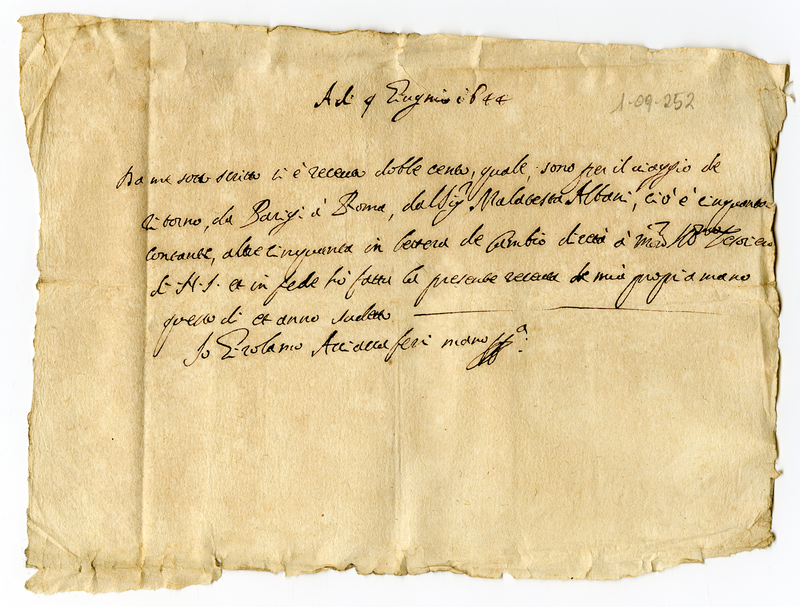 A di 9 Giugnio 1644
1-09-252
Da me sotto scritto si è receuto doble cento, quale, sono per il viaggio de
ritorno, da Parigi à Roma, dal Sigr Malatesta Albani, cio è cinquanta
contante, altre cinquanta in lettera de Cambio diretta à Tesoriero
di N. S. et in fede hò fatta la presente receuta de mia propria mano
questo di et anno sudetto
Io Girolamo mano ppa.